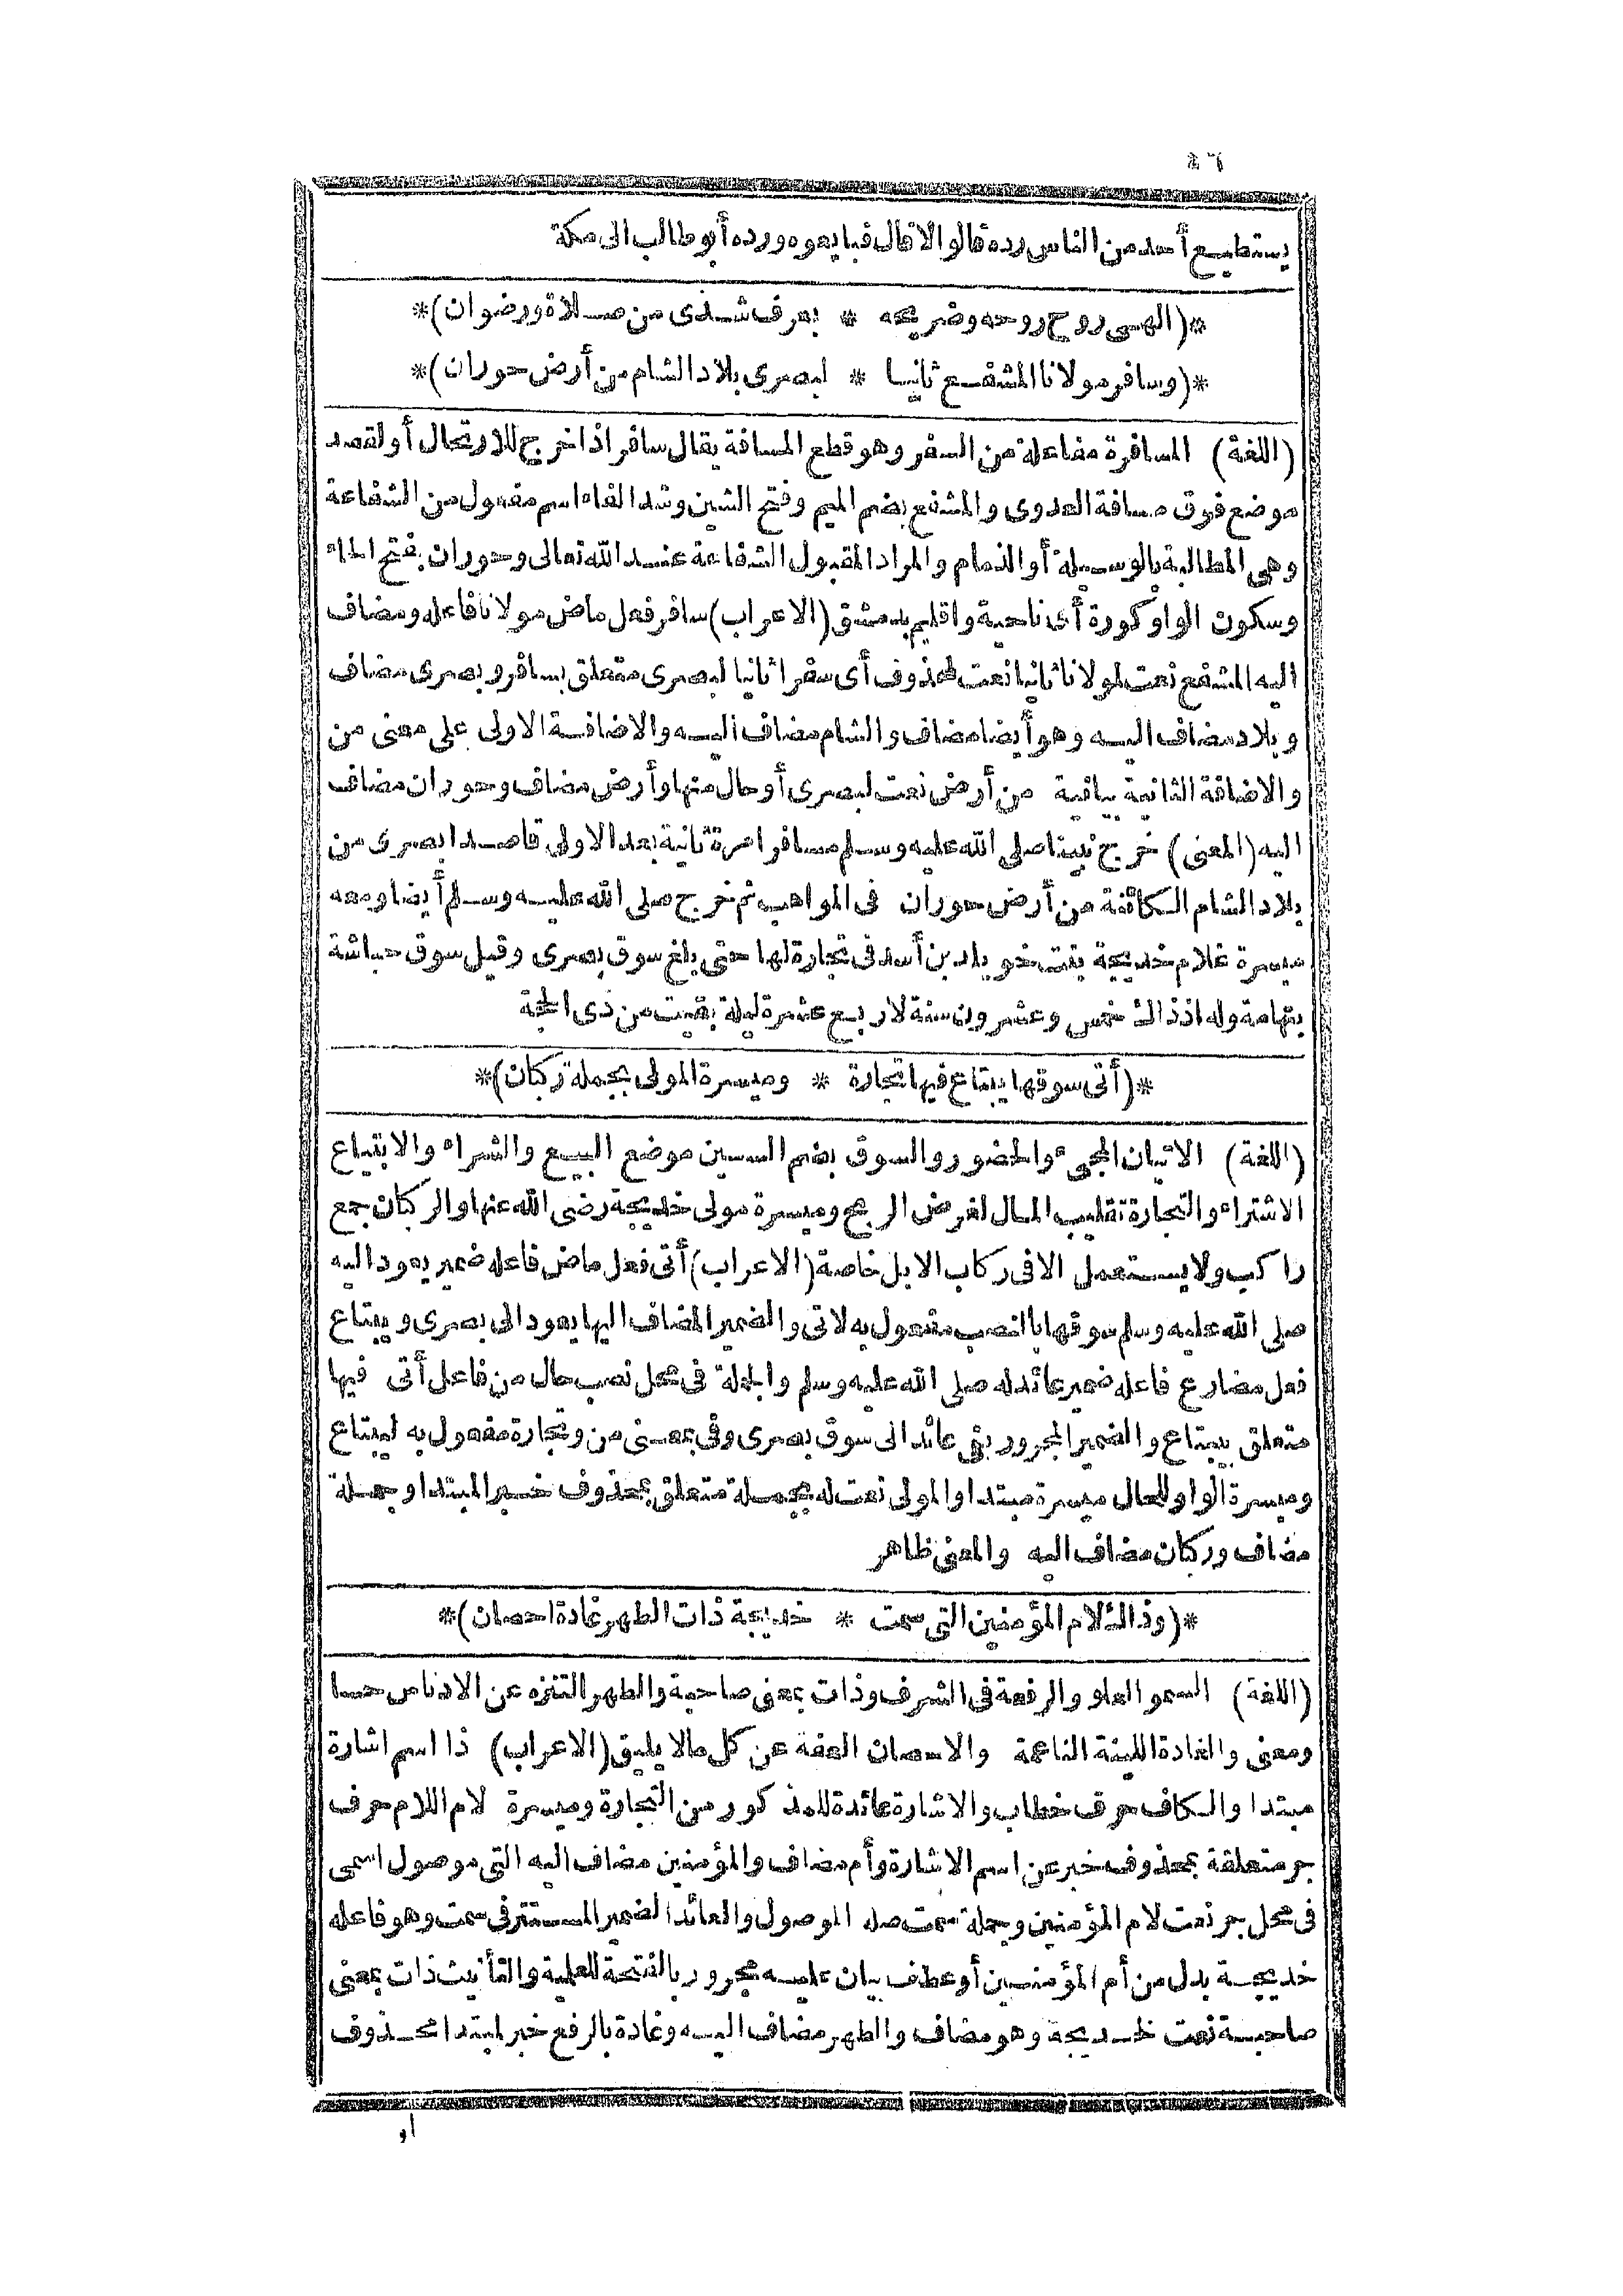 ٤٦
يستطيع أحد من الناس رده قالوا لا قال فبايعوه ورده أبو طالب الى مكة
*(الهى روح روحه وضريحه * بعرف شذى من صلاة ورضوان)*
*(وسافر مولانا المشفع ثانيا * لبصرى بلاد الشام من أرض حوران)*
(اللغة) المسافرة مفاعلة من السفر وهو قطع المسافة يقال سافر اذا خرج للارتحال أو لقصد
موضع فوق مسافة العدوى والمشفع بضم الميم وفتح الشين وشد الفاء اسم مفعول من الشفاعة
وهى المطالبة بالوسيلة أو الذمام والمراد المقبول الشفاعة عند الله تعالى وحوران بفتح الحاء
وسكون الواو كورة أى ناحية واقليم بدمشق (الاعراب) سافر فعل ماض مولانا فاعله ومضاف
اليه المشفع نعت لمولانا ثانيا نعت لمحذوف أى سفرا ثانيا لبصرى متعلق بسافر وبصرى مضاف
وبلاد مضاف اليه وهو أيضا مضاف والشام مضاف اليه والاضافة الاولى على معنى من
والاضافة الثانية بيانية من أرض نعت لبصرى أو حال منها وأرض مضاف وحوران مضاف
اليه (المعنى) خرج نبينا صلى الله عليه وسلم مسافرا مرة ثانية بعد الاولى قاصدا بصرى من
بلاد الشام الكائنة من أرض حوران فى المواهب ثم خرج صلى الله عليه وسلم أيضا ومعه
ميسرة غلام خديجة بنت خويلد بن أسد فى تجارة لها حتى بلغ سوق بصرى وقيل سوق حباشة
بتهامة وله اذ ذاك خمس وعشرون سنة لاربع عشرة ليلة بقيت من ذى الحجة
*(أتى سوقها يبتاع فيها تجارة * وميسرة المولى بجملة ركبان)*
(اللغة) الاتيان المجىء والحضور والسوق بضم السين موضع البيع والشراء والابتياع
الاشتراء والتجارة تقليب المال لغرض الربح وميسرة مولى خديجة رضى الله عنها والركبان جمع
راكب ولا يستعمل الا فى ركاب الابل خاصة (الاعراب) أتى فعل ماض فاعله ضمير يعود اليه
صلى الله عليه وسلم سوقها بالنصب مفعول به لاتى والضمير المضاف اليها يعود الى بصرى ويبتاع
فعل مضارع فاعله ضمير عائد له صلى الله عليه وسلم والجملة فى محل نصب حال من فاعل أتى فيها
متعلق بيبتاع والضمير المجرور بفى عائد الى سوق بصرى وفى بمعنى من وتجارة مفعول به ليبتاع
وميسرة الواو للحال ميسرة مبتدا والمولى نعت له بجملة متعلق بمحذوف خبر المبتدا وجملة
مضاف وركبان مضاف اليه والمعنى ظاهر
*(وذاك لام المؤمنين التى سمت * خديجة ذات الطهر غادة احصان)*
(اللغة) السمو العلو والرفعة فى الشرف وذات بمعنى صاحبة والطهر التنزه عن الادناس حسا
ومعنى والغادة اللينة الناعمة والاحصان العفة عن كل مالا يليق (الاعراب) ذا اسم اشارة
مبتدا والكاف حرف خطاب والاشارة عائدة للمذكور من التجارة وميسرة لام اللام حرف
جر متعلقة بمحذوف خبر عن اسم الاشارة وأم مضاف والمؤمنين مضاف اليه التى موصول اسمى
فى محل جر نعت لام المؤمنين وجملة سمت صلة الموصول والعائد الضمير المستتر فى سمت وهو فاعله
خديجة بدل من أم المؤمنين أو عطف بيان عليه مجرور بالفتحة للعلمية والتأنيث ذات بمعنى
صاحبة نعت خديجة وهو مضاف والطهر مضاف اليه وغادة بالرفع خبر لمبتدا محذوف
او